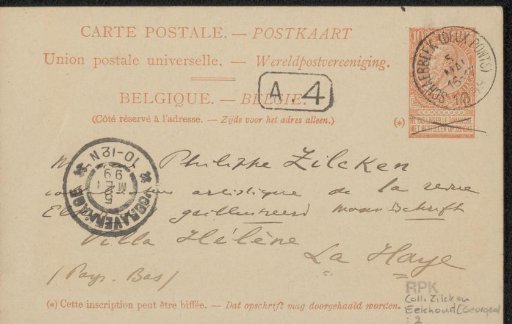 CARTE POSTALE. — POSTKAART
Union postale universelle. — Wereldpostvereeniging.
BELGIQUE. — BELGIË.
(Côté réservé à l'adresse. — Zijde voor het adres alleen.)
(*)
A.4
SCHAERBEEK (DEUX PONTS)
5
MAI
'SGRAVENHAGE
10-12 N
5 MEI
99
M Philippe Zilcken
artistique de la revue
geillustreerd maandschrift
Villa Hélène
La Haye
(Pays-Bas)
(*) Cette inscription peut être biffée. — Dat opschrift mag doorgehaald worden.
RPK
Coll. Zilcken
Eekhoud (Georges)
: 2